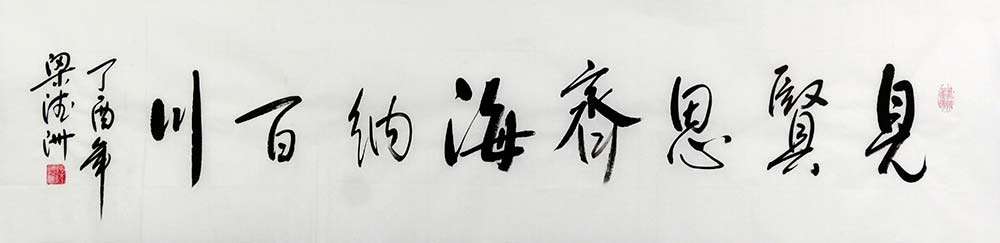 見賢思齊海納百川
丁酉年
梁德洲